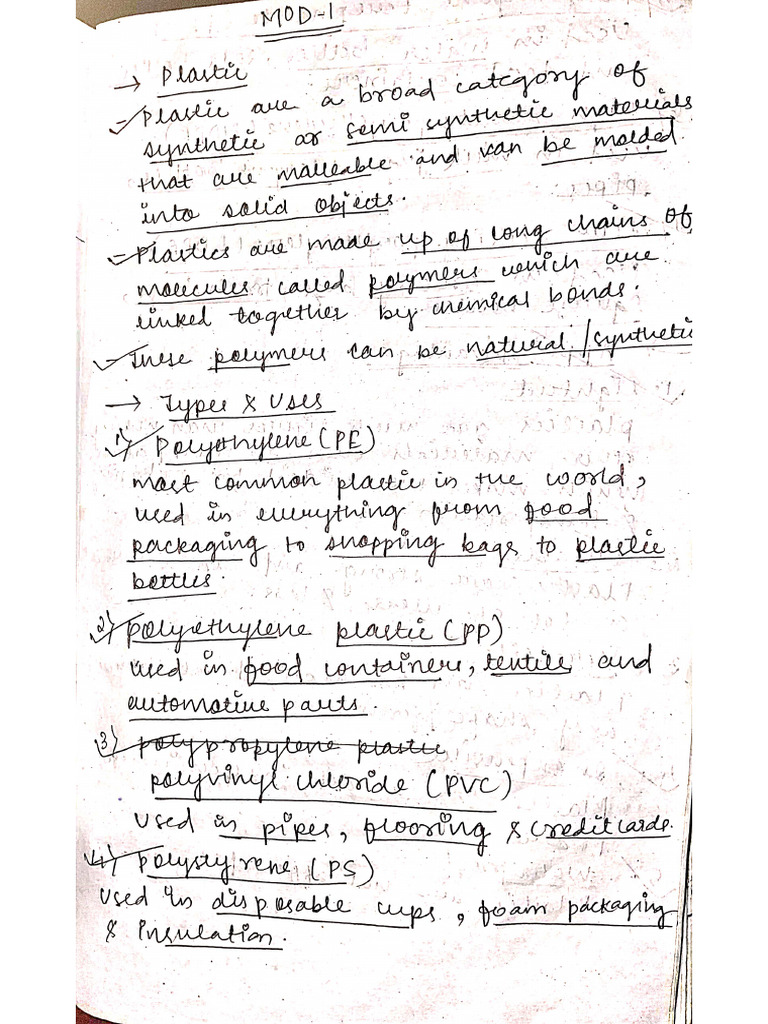 MOD-1
→ Plastic
- Plastic are a broad category of
synthetic or semi synthetic materials
that are malleable and can be molded
into solid objects.
- Plastics are made up of long chains of
molecules called polymers which are
linked together by chemical bonds.
- These polymers can be natural/synthetic
→ Types & Uses
1) Polyethylene (PE)
most common plastic in the world,
used in everything from food
packaging to shopping bags to plastic
bottles.
2) polyethylene plastic (PP)
used in food containers, textile and
automotive parts.
3) polypropylene plastic
polyvinyl chloride (PVC)
Used in pipes, flooring & credit cards.
4) Polystyrene (PS)
Used in disposable cups, foam packaging
& Insulation.